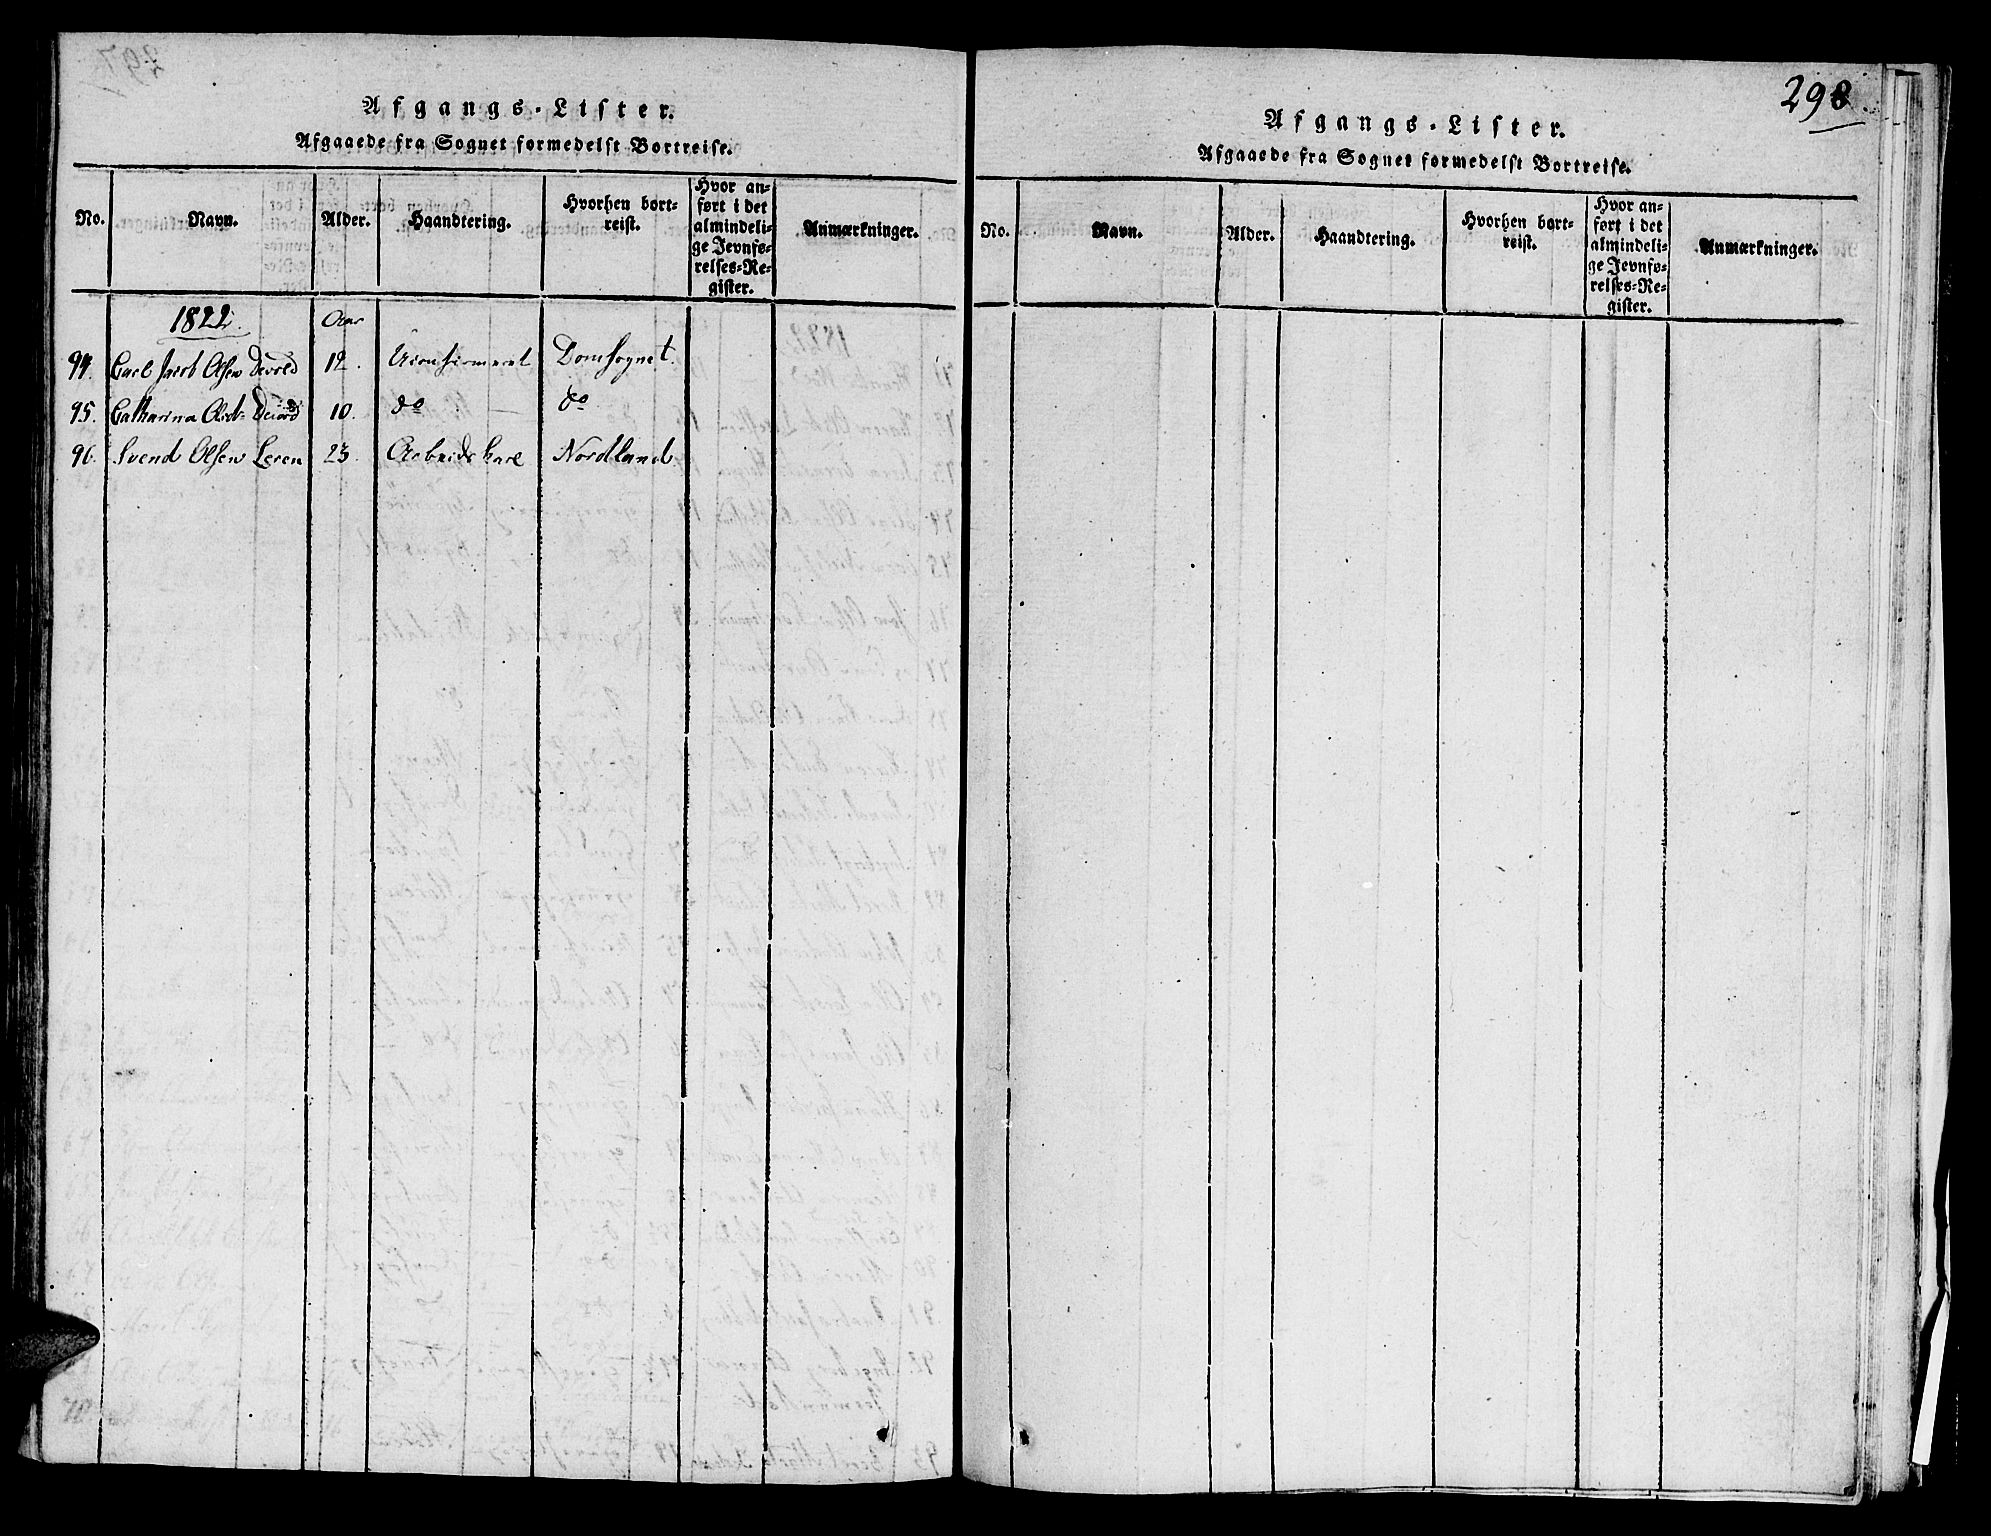 Afgangs-Lister.
Afgaaede fra Sognet formedelst Bortreise.
No. Navn. Alder. Haandtering. Hvorhen bortreist. Hvor anført i det almindelige Jevnførelses-Register. Anmærkninger.
1822. Aar
94. Carl Jacob Olsen Devold 12. Uconfirmeret Domsognet.
95. Catharina Olsd: Devold 10. do — do
96. Svend Olsen Leren 23. Arbeidskarl Nordland.
298.
Afgangs-Lister.
Afgaaede fra Sognet formedelst Bortreise.
No. Navn. Alder. Haandtering. Hvorhen bortreist. Hvor anført i det almindelige Jevnførelses-Register. Anmærkninger.